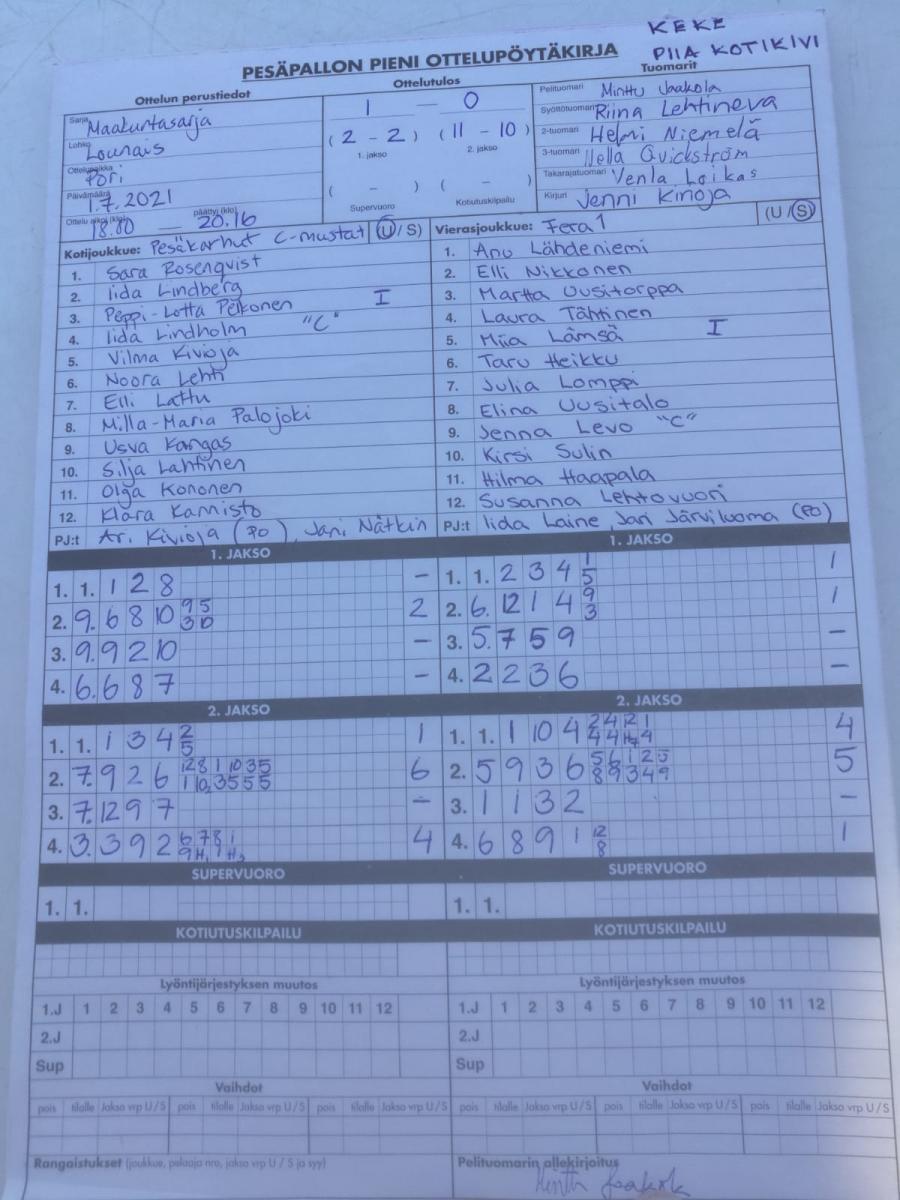 KEKE
PIIA KOTIKIVI
PESÄPALLON PIENI OTTELUPÖYTÄKIRJA
Ottelun perustiedot
Sarja Maakuntasarja
Lohko Lounais
Ottelupaikka Pori
Päivämäärä 1.7.2021
Ottelu alkoi (klo) 18.00 — päättyi (klo) 20.16
Ottelutulos
1 — 0
(2 - 2) (11 - 10)
1. jakso 2. jakso
( - ) ( - )
Supervuoro Kotiutuskilpailu
Tuomarit
Pelituomari Minttu Jaakola
Syöttötuomari Riina Lehtineva
2-tuomari Helmi Niemelä
3-tuomari Nella Qvickström
Takarajatuomari Venla Loikas
Kirjuri Jenni Kirioja
Kotijoukkue: Pesäkarhut C-mustat (U/S)
1. Sara Rosenqvist
2. Iida Lindberg
3. Peppi-Lotta Pelkonen I
4. Iida Lindholm "C"
5. Vilma Kivioja
6. Noora Lehti
7. Elli Lattu
8. Milla-Maria Palojoki
9. Usva Kangas
10. Silja Lahtinen
11. Olga Kononen
12. Klara Kannisto
PJ:t Ari Kivioja (PO), Jani Nätkin
Vierasjoukkue: Fera 1 (U/S)
1. Anu Lähdeniemi
2. Elli Nikkonen
3. Martta Uusitorppa
4. Laura Tähtinen
5. Miia Lämsä I
6. Taru Heikku
7. Julia Lomppi
8. Elina Uusitalo
9. Jenna Levo "C"
10. Kirsi Sulin
11. Hilma Haapala
12. Susanna Lehtovuori
PJ:t Iida Laine, Jari Järviluoma (PO)
1. JAKSO
1. 1. 1 2 8 -
2. 9. 6 8 10 9 5 2
3 10
3. 9. 9 2 10 -
4. 6. 6 8 7 -
1. JAKSO
1. 1. 2 3 4 1 1
5
2. 6. 12 1 4 9 1
3
3. 5. 7 5 9 -
4. 2 2 3 6 -
2. JAKSO
1. 1. 1 3 4 2 1
5
2. 7. 9 2 6 12 8 1 10 3 5 6
1 10 3 5 5 5
3. 7. 12 9 7 -
4. 3. 3 9 2 6 7 8 1 4
2. JAKSO
1. 1. 1 10 4 2 4 12 1 4
2. 5 9 3 6 5 6 1 2 5 5
8 9 3 4 9
3. 1 1 3 2 -
4. 6 8 9 1 12 1
8
SUPERVUORO
1. 1.
SUPERVUORO
1. 1.
KOTIUTUSKILPAILU
KOTIUTUSKILPAILU
Lyöntijärjestyksen muutos
1.J 1 2 3 4 5 6 7 8 9 10 11 12
2.J
Sup
Lyöntijärjestyksen muutos
1.J 1 2 3 4 5 6 7 8 9 10 11 12
2.J
Sup
Vaihdot
pois tilalle Jakso vrp U/S pois tilalle Jakso vrp U/S pois tilalle Jakso vrp U/S
Vaihdot
pois tilalle Jakso vrp U/S pois tilalle Jakso vrp U/S pois tilalle Jakso vrp U/S
Rangaistukset (joukkue, pelaaja nro, jakso vrp U / S ja syy)
Pelituomarin allekirjoitus
Minttu Jaakola